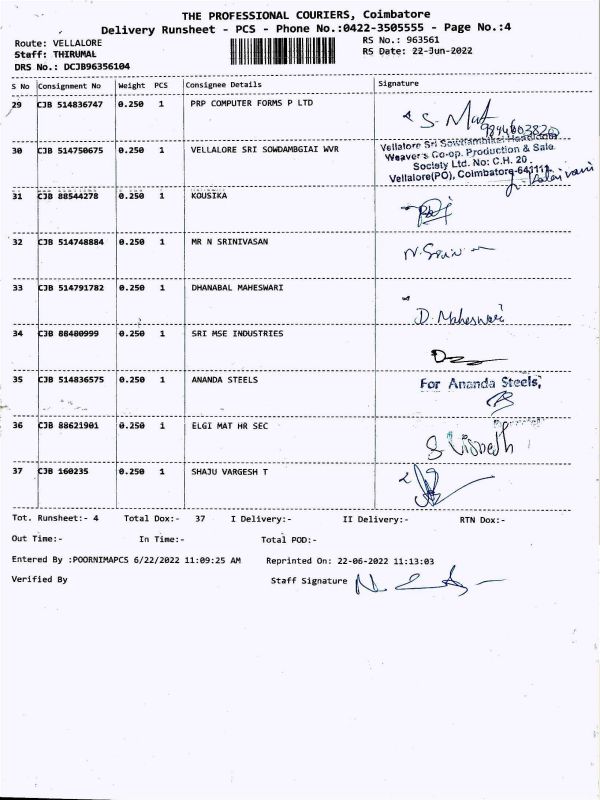 THE PROFESSIONAL COURIERS, Coimbatore
Delivery Runsheet - PCS - Phone No.:0422-3505555 - Page No.:4
Route: VELLALORE RS No.: 963561
Staff: THIRUMAL RS Date: 22-Jun-2022
DRS No.: DCJB96356104
S No Consignment No Weight PCS Consignee Details Signature
29 CJB 514836747 0.250 1 PRP COMPUTER FORMS P LTD
30 CJB 514750675 0.250 1 VELLALORE SRI SOWDAMBGIAI WVR
Vellalore Sri Sowdambikai Handloom
Weaver's Co-op. Production & Sale
Society Ltd. No: C.H. 20
Vellalore(PO), Coimbatore-641111.
31 CJB 88544278 0.250 1 KOUSIKA
32 CJB 514748884 0.250 1 MR N SRINIVASAN
33 CJB 514791782 0.250 1 DHANABAL MAHESWARI
D. Maheswari
34 CJB 88480999 0.250 1 SRI MSE INDUSTRIES
35 CJB 514836575 0.250 1 ANANDA STEELS For Ananda Steels,
36 CJB 88621901 0.250 1 ELGI MAT HR SEC
37 CJB 160235 0.250 1 SHAJU VARGESH T
Tot. Runsheet:- 4 Total Dox:- 37 I Delivery:- II Delivery:- RTN Dox:-
Out Time:- In Time:- Total POD:-
Entered By :POORNIMAPCS 6/22/2022 11:09:25 AM Reprinted On: 22-06-2022 11:13:03
Verified By Staff Signature